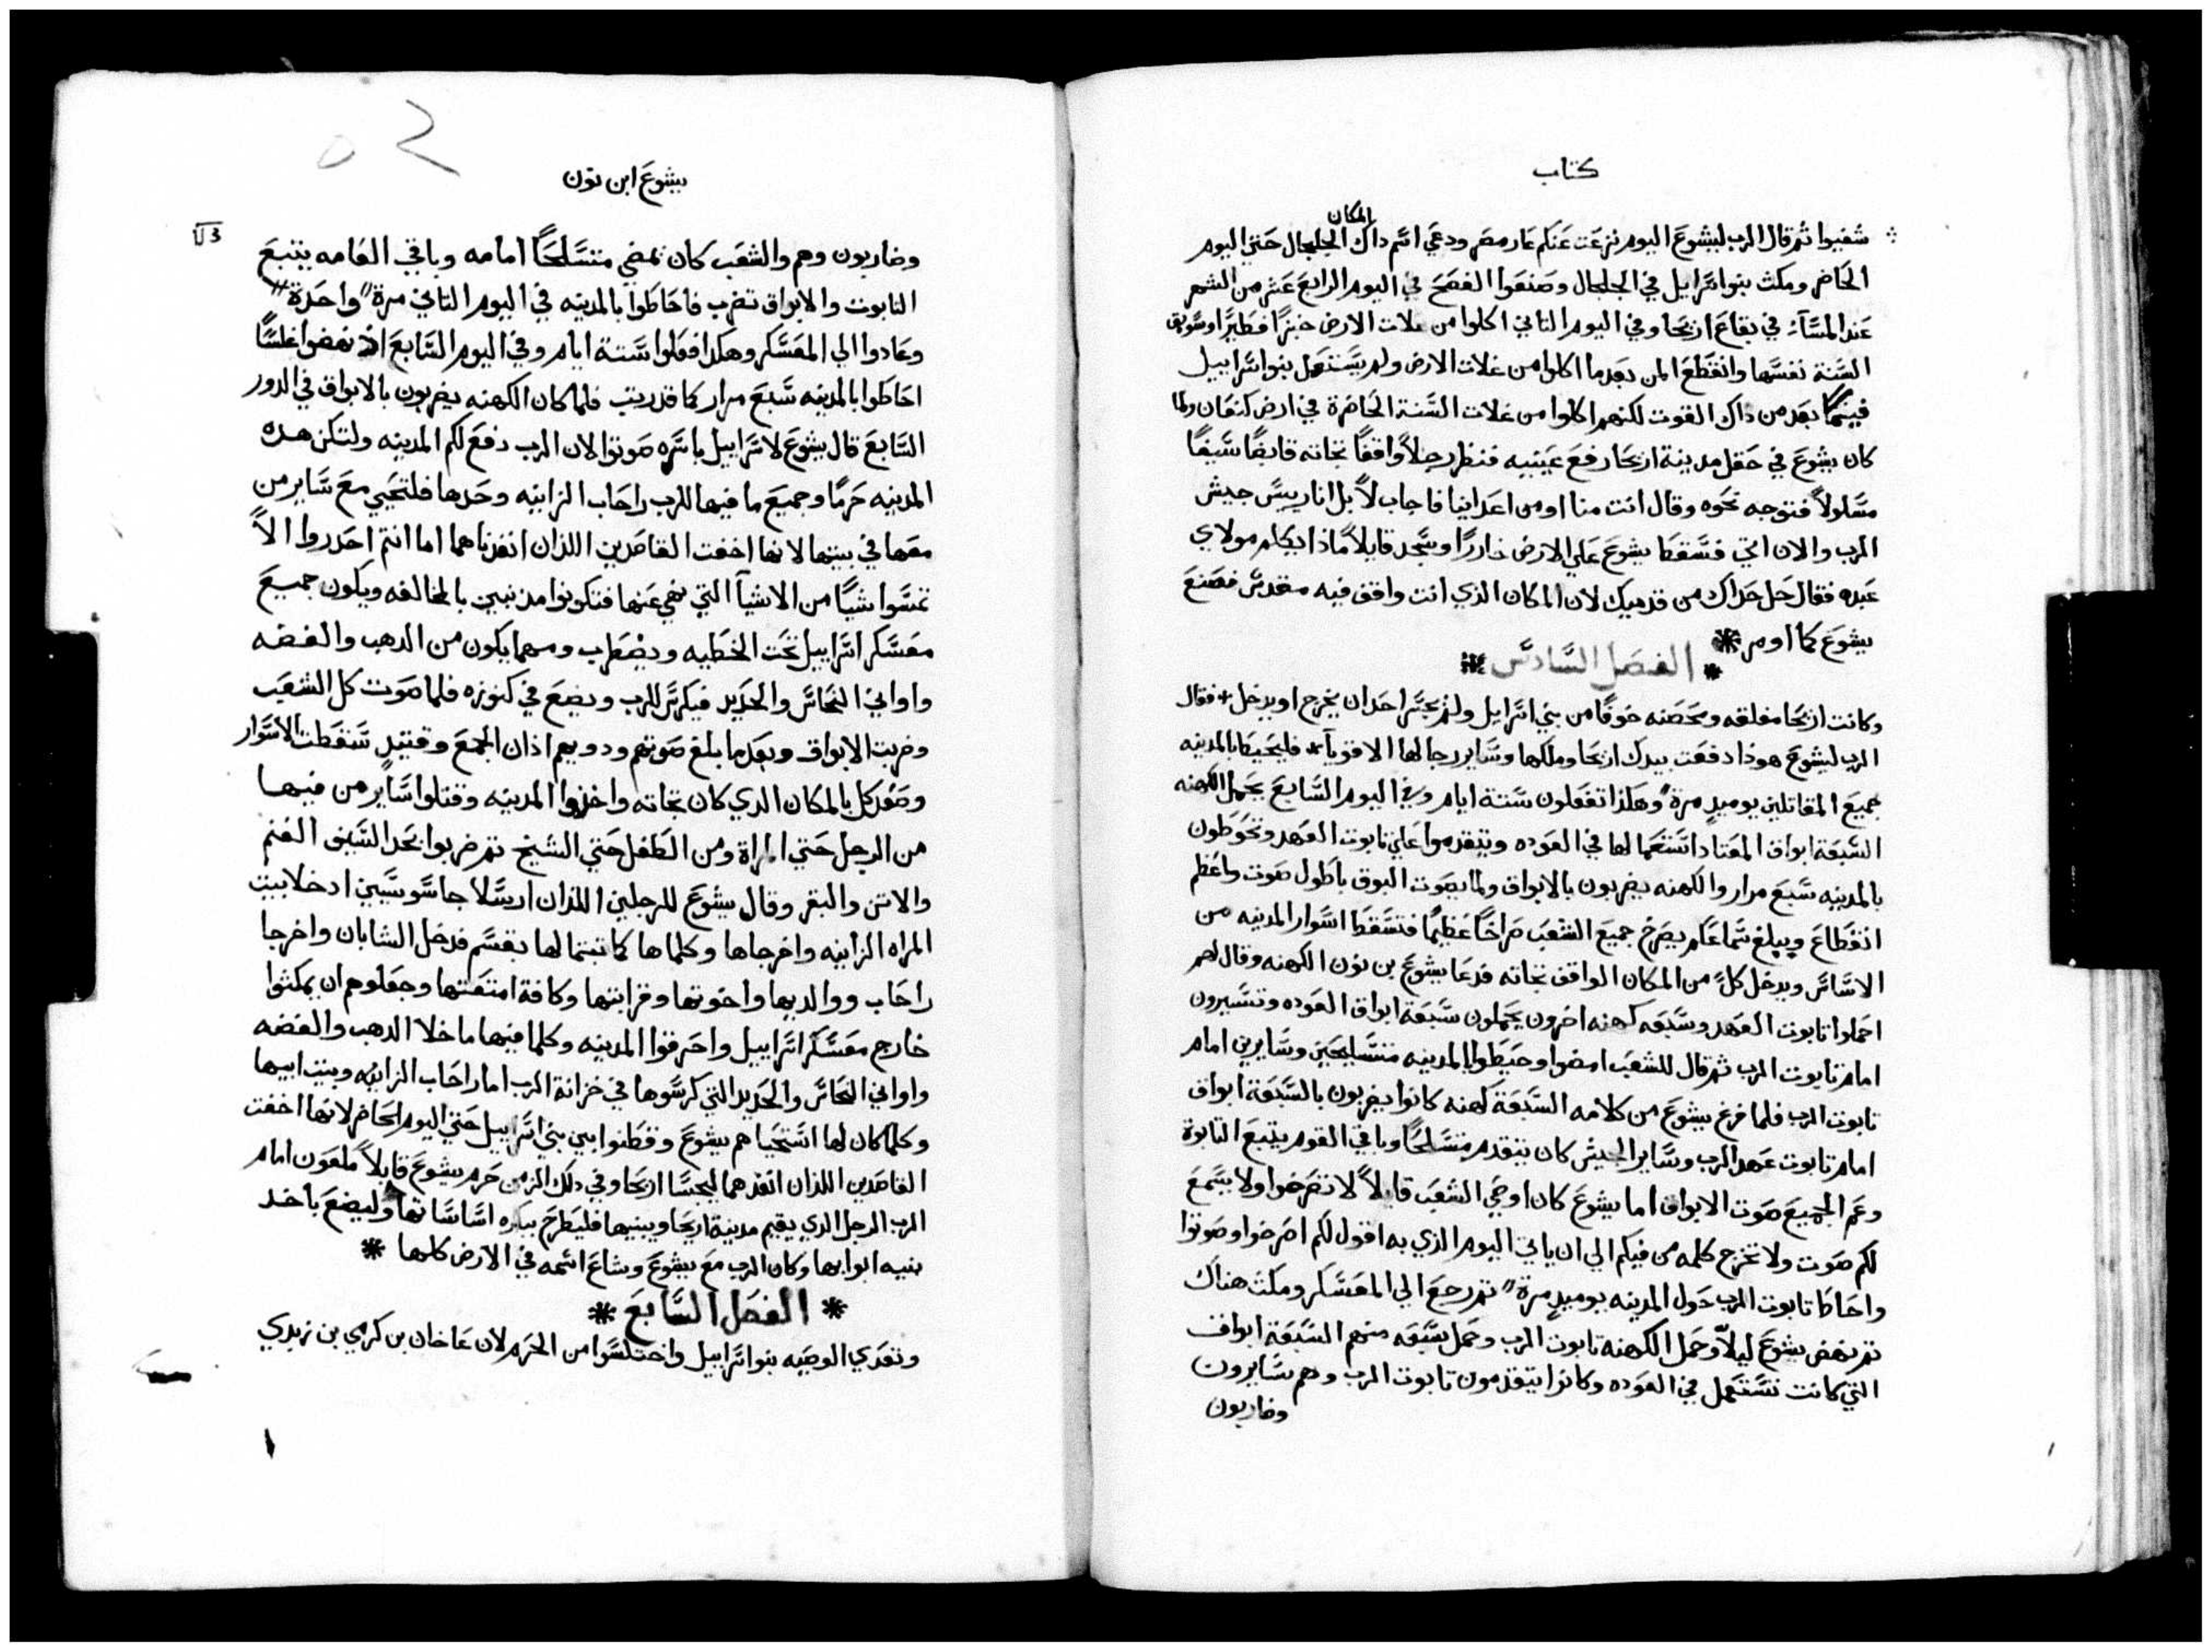 كتاب
شفيوا ثم قال الرب ليشوع اليوم نزعت عنكم عار مصر ودعي اسم داك المكان الجلجال حتي اليوم
الحاضر ومكث بنو اسرايل في الجلجال وصنعوا الفصح في اليوم الرابع عشر من الشهر
عند المسآء في بقاع اريحا وفي اليوم الثاني اكلوا من غلات الارض خبزًا فطيرًا وسويق
السنة نفسها وانقطع المن بعد ما اكلوا من غلات الارض ولم يستعمل بنو اسراييل
فيما بعد من ذاك القوت لكنهم اكلوا من غلات السنة الحاضرة في ارض كنعان ولما
كان يشوع في حقل مدينة اريحا رفع عينيه فنظر رجلاً واقفًا تجاته قابضًا سيفًا
مسلولاً فتوجه نحوه وقال انت منا او من اعداينا فاجاب لاً بل انا رييس جيش
الرب والان اتي فسقط يشوع علي الارض خاررًا وسجد قايلاً ماذا يكلم مولاي
عبده فقال حل حداك من قدميك لان المكان الذي انت واقف فيه مقدس فصنع
يشوع كما اومر *
* الفصل السادس *
وكانت اريحا مغلقه ومحصنه خوفًا من بني اسرايل ولم يجسر احد ان يخرج او يدخل * فقال
الرب ليشوع هوذا دفعت بيدك اريحا وملكها وساير رجالها الاقويآ * فليحيط بالمدينه
جميع المقاتلين يوميدٍ مرة وهكذا تفعلون ستة ايام وفي اليوم السابع يحمل الكهنه
السبعة ابواق المعتاد استعمالها في العوده ويتقدموا علي تابوت العهد وتحوطون
بالمدينه سبع مرار والكهنه يضربون بالابواق ولما يصوت البوق باطول صوت واعظم
انقطاع ويبلغ سماعكم يصرخ جميع الشعب صراخًا عظيمًا فتسقط اسوار المدينه من
الاساس ويدخل كلً من المكان الواقف تجاته فدعا يشوع بن نون الكهنه وقال لهم
احملوا تابوت العهد وسبعه كهنه اخرون يحملون سبعة ابواق العوده وتسيرون
امام تابوت الرب ثم قال للشعب امضوا وحيطوا بالمدينه متسلحين وسايرين امام
تابوت الرب فلما فرغ يشوع من كلامه السبعة كهنه كانوا يضربون بالسبعة ابواق
امام تابوت عهد الرب وساير الجيش كان يتقدم متسلحًا وباقي القوم يتبع التابوة
وعم الجميع صوت الابواق اما يشوع كان اوصي الشعب قايلاً لا تصرخوا ولا يسمع
لكم صوت ولا تخرج كلمه من فيكم الي ان ياتي اليوم الذي به اقول لكم اصرخوا وصوتوا
واحاط تابوت الرب حول المدينه يوميدٍ مرة ثم رجع الي المعسكر ومكث هناك
ثم نهض يشوع ليلاً وحمل الكهنة تابوت الرب وحمل سبعه منهم السبعة ابواق
التي كانت تستعمل في العوده وكانوا يتقدمون تابوت الرب وهم سايرون
وضاربون
يشوع ابن نون
وضاربون وهم والشعب كان يمضي متسلحًا امامه وباقي العامه يتبع
التابوت والابواق تضرب فاحاطوا بالمدينه في اليوم الثاني مرة واحدة
وعادوا الي المعسكر وهكدا فعلوا ستة ايام وفي اليوم السابع اد نهضوا غلسًا
احاطوا بالمدينه سبع مرار كما قد رتب فلما كان الكهنه يضربون بالابواق في الدور
السابع قال يشوع لاسراييل باسره صوتوا لان الرب دفع لكم المدينه ولتكن هده
المدينه حرمًا وجميع ما فيها للرب راحاب الزانيه وحدها فلتحيي مع ساير من
معها في بيتها لانها اخفت القاصدين اللدان انفدناهما اما انتم احدروا الاً
تمسوا شيًا من الاشيآ التي نهي عنها فتكونوا مدنبين بالمخالفه ويكون جميع
معسكر اسراييل تحت الخطيه ويضطرب ومهما يكون من الدهب والفضه
واواني النحاس والحديد فيكرس للرب ويضع في كنوزه فلما صوت كل الشعب
وضربت الابواق وبعد ما بلغ صوتهم ودويهم اذان الجمع وقتيدٍ سقطت الاسوار
وصعد كل بالمكان الدي كان تجاته واخذوا المدينه وقتلوا ساير من فيها
من الرجل حتي المراة ومن الطفل حتي الشيخ ثم ضربوا بحد السيف الغنم
والاتن والبقر وقال يشوع للرجلين اللدان ارسلا جاسوسين ادخلا بيت
المراه الزانيه واخرجاها وكلما لها كما تبتما لها بقسم فدخل الشابان واخرجا
راحاب ووالديها واخوتها وقرابتها وكافة امتعتها وجعلوهم ان يمكثوا
خارج معسكر اسراييل واحرقوا المدينه وكلما فيها ما خلا الدهب والفضه
واواني النحاس والحديد التي كرسوها في خزانة الرب اما راحاب الزانيه وبيت ابيها
وكلما كان لها استحياهم يشوع وقطنوا بين بني اسراييل حتي اليوم الحاضر لانها اخفت
القاصدين اللدان انفدهما ليجسا اريحا وفي دلك الزمن حرم يشوع قايلاً ملعون امام
الرب الرجل الدي يقيم مدينة اريحا ويبنيها فليطرح ببكره اساساتها وليضع باخد
بنيه ابوابها وكان الرب مع يشوع وشاع اسمه في الارض كلها *
* الفصل السابع *
وتعدي الوصيه بنو اسراييل واختلسوا من الحرم لان عاخان بن كرمي بن زبدي